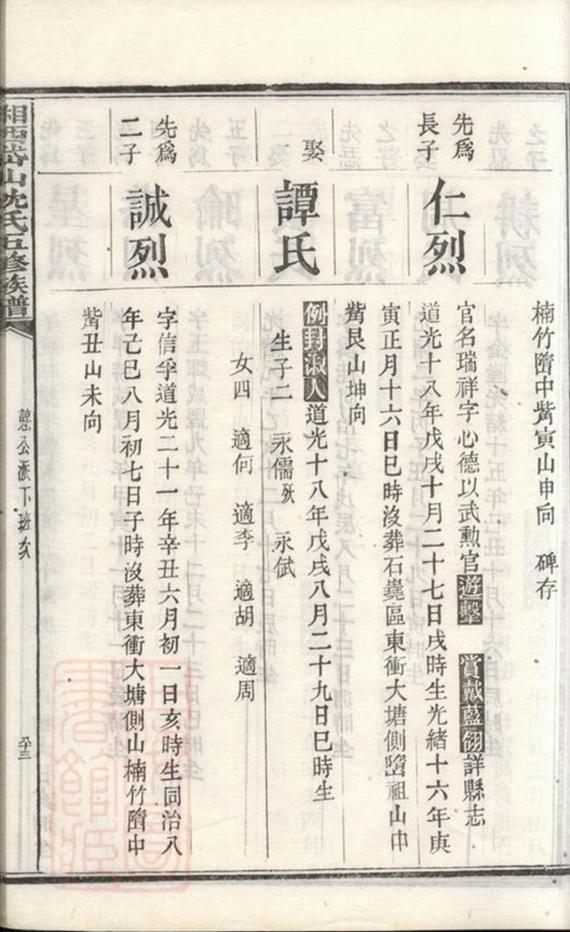 楠竹𡒄中觜寅山申向 碑存
先為長子
仁烈
官名瑞祥字心德以武勳官遊擊 賞戴藍翎詳縣志
道光十八年戊戌十月二十七日戌時生光緒十六年庚
寅正月十六日巳時沒葬石㙡區東衝大塘側祖山中
觜艮山坤向
娶
譚氏
例封淑人道光十八年戊戌八月二十九日巳時生
生子二 永儒 永倵
女四 適何 適李 適胡 適周
先為二子
誠烈
字信孚道光二十一年辛丑六月初一日亥時生同治八
年己巳八月初七日子時沒葬東衝大塘側山楠竹中
觜丑山未向
湘西岱山沈氏五修族譜
公派下班次